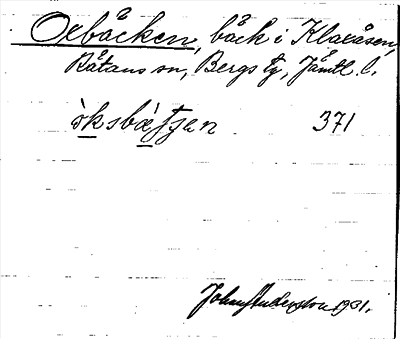 Oxbäcken, bäck i Klaxåsen,
Råtans sn, Bergs tg, Jämtl. l.
òksbæ̀ʃʃen 371
Johan Anderston 1931.